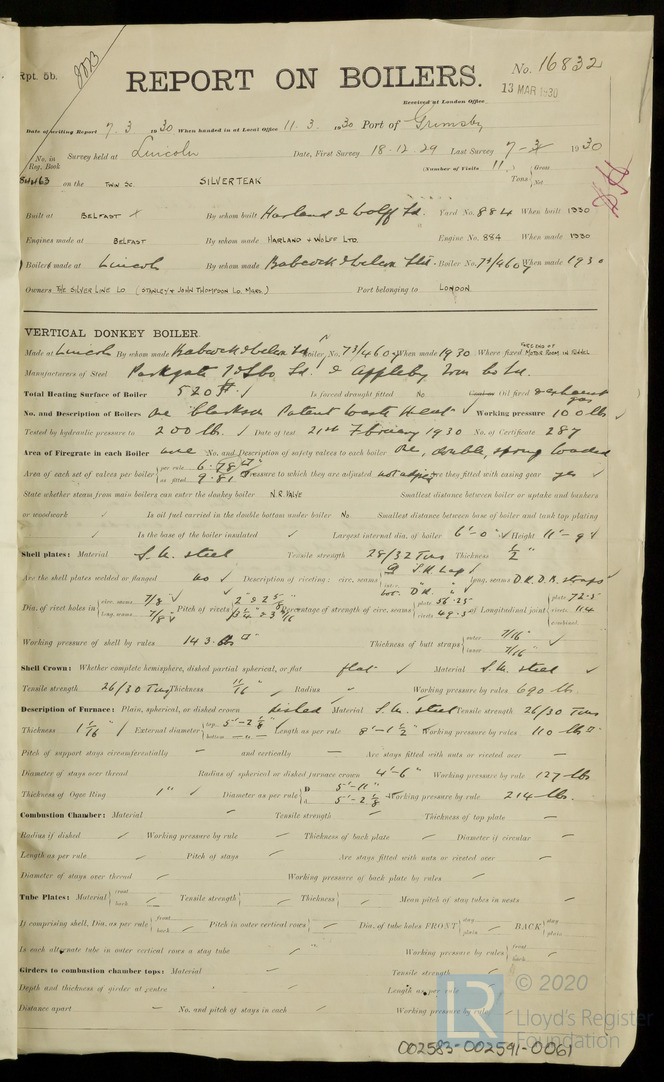 Rpt. 5b.
REPORT ON BOILERS.
No. 16832
13 MAR 1930
Received at London Office
Date of writing Report 7. 3 1930 When handed in at Local Office 11. 3. 1930 Port of Grimsby
No. in Reg. Book Survey held at Lincoln Date, First Survey 18-12-29 Last Survey 7-3 1930
(Number of Visits 11)
on the TWIN SC. SILVERTEAK Tons Gross Net
Built at BELFAST By whom built Harland & Wolff Ld. Yard No. 884 When built 1930
Engines made at BELFAST By whom made HARLAND & WOLFF LTD. Engine No. 884 When made 1930
Boilers made at Lincoln By whom made Babcock & Wilcox Ltd. Boiler No. 73/4607 When made 1930
Owners THE SILVER LINE LD (STANLEY & JOHN THOMPSON LD. MGRS.) Port belonging to LONDON
VERTICAL DONKEY BOILER.
Made at Lincoln By whom made Babcock & Wilcox Ld. Boiler No. 73/4607 When made 1930 Where fixed MOTOR ROOM IN FUNNEL
Manufacturers of Steel Parkgate I & S Co. Ld. & Appleby Iron Co Ld.
Total Heating Surface of Boiler 520 Is forced draught fitted No Coal or Oil fired exhaust gas
No. and Description of Boilers One Clarkson Patent Waste Heat Working pressure 100 lbs
Tested by hydraulic pressure to 200 lbs. Date of test 21st February 1930 No. of Certificate 287
Area of Firegrate in each Boiler No. and Description of safety valves to each boiler One, double, spring loaded
Area of each set of valves per boiler per rule 6.78 as fitted 9.81 Pressure to which they are adjusted not adjusted Are they fitted with easing gear yes
State whether steam from main boilers can enter the donkey boiler N.R. VALVE Smallest distance between boiler or uptake and bunkers
or woodwork Is oil fuel carried in the double bottom under boiler No Smallest distance between base of boiler and tank top plating
Is the base of the boiler insulated Largest internal dia. of boiler 6'-0" Height 11'-9
Shell plates: Material S.M. steel Tensile strength 28/32 Tons Thickness 1/2"
Are the shell plates welded or flanged no Description of riveting: circ. seams S.R. Lap D.R. long. seams D.R. D.B. straps
Dia. of rivet holes in circ. seams 7/8" long. seams 7/8" Pitch of rivets Percentage of strength of circ. seams plate 56.25 rivets 49.5 of Longitudinal joint plate 72.5 rivets 114 combined
Working pressure of shell by rules 143 lbs Thickness of butt straps outer 7/16" inner 7/16"
Shell Crown: Whether complete hemisphere, dished partial spherical, or flat flat Material S.M. steel
Tensile strength 26/30 Tons Thickness 11/16" Radius Working pressure by rules 690 lbs.
Description of Furnace: Plain, spherical, or dished crown dished Material S.M. steel Tensile strength 26/30 Tons
Thickness 1 1/16" External diameter top 5'-2 1/8" bottom Length as per rule 8'-1 1/2" Working pressure by rules 110 lbs
Pitch of support stays circumferentially and vertically Are stays fitted with nuts or riveted over
Diameter of stays over thread Radius of spherical or dished furnace crown 4'-6" Working pressure by rule 127 lbs
Thickness of Ogee Ring 1" Diameter as per rule D 5'-11" d 5'-2 1/8 Working pressure by rule 214 lbs.
Combustion Chamber: Material Tensile strength Thickness of top plate
Radius if dished Working pressure by rule Thickness of back plate Diameter if circular
Length as per rule Pitch of stays Are stays fitted with nuts or riveted over
Diameter of stays over thread Working pressure of back plate by rules
Tube Plates: Material front back Tensile strength Thickness Mean pitch of stay tubes in nests
If comprising shell, Dia. as per rule front back Pitch in outer vertical rows Dia. of tube holes FRONT stay plain BACK stay plain
Is each alternate tube in outer vertical rows a stay tube Working pressure by rules front back
Girders to combustion chamber tops: Material Tensile strength
Depth and thickness of girder at centre Length as per rule
Distance apart No. and pitch of stays in each Working pressure by rule
© 2020
Lloyd's Register
Foundation
LR
002583-002591-0061